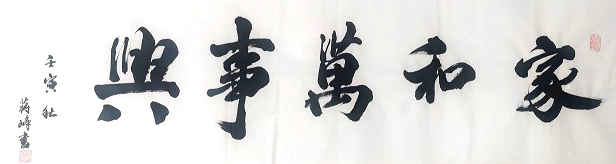 家和萬事興
壬寅秋
蔣峰書